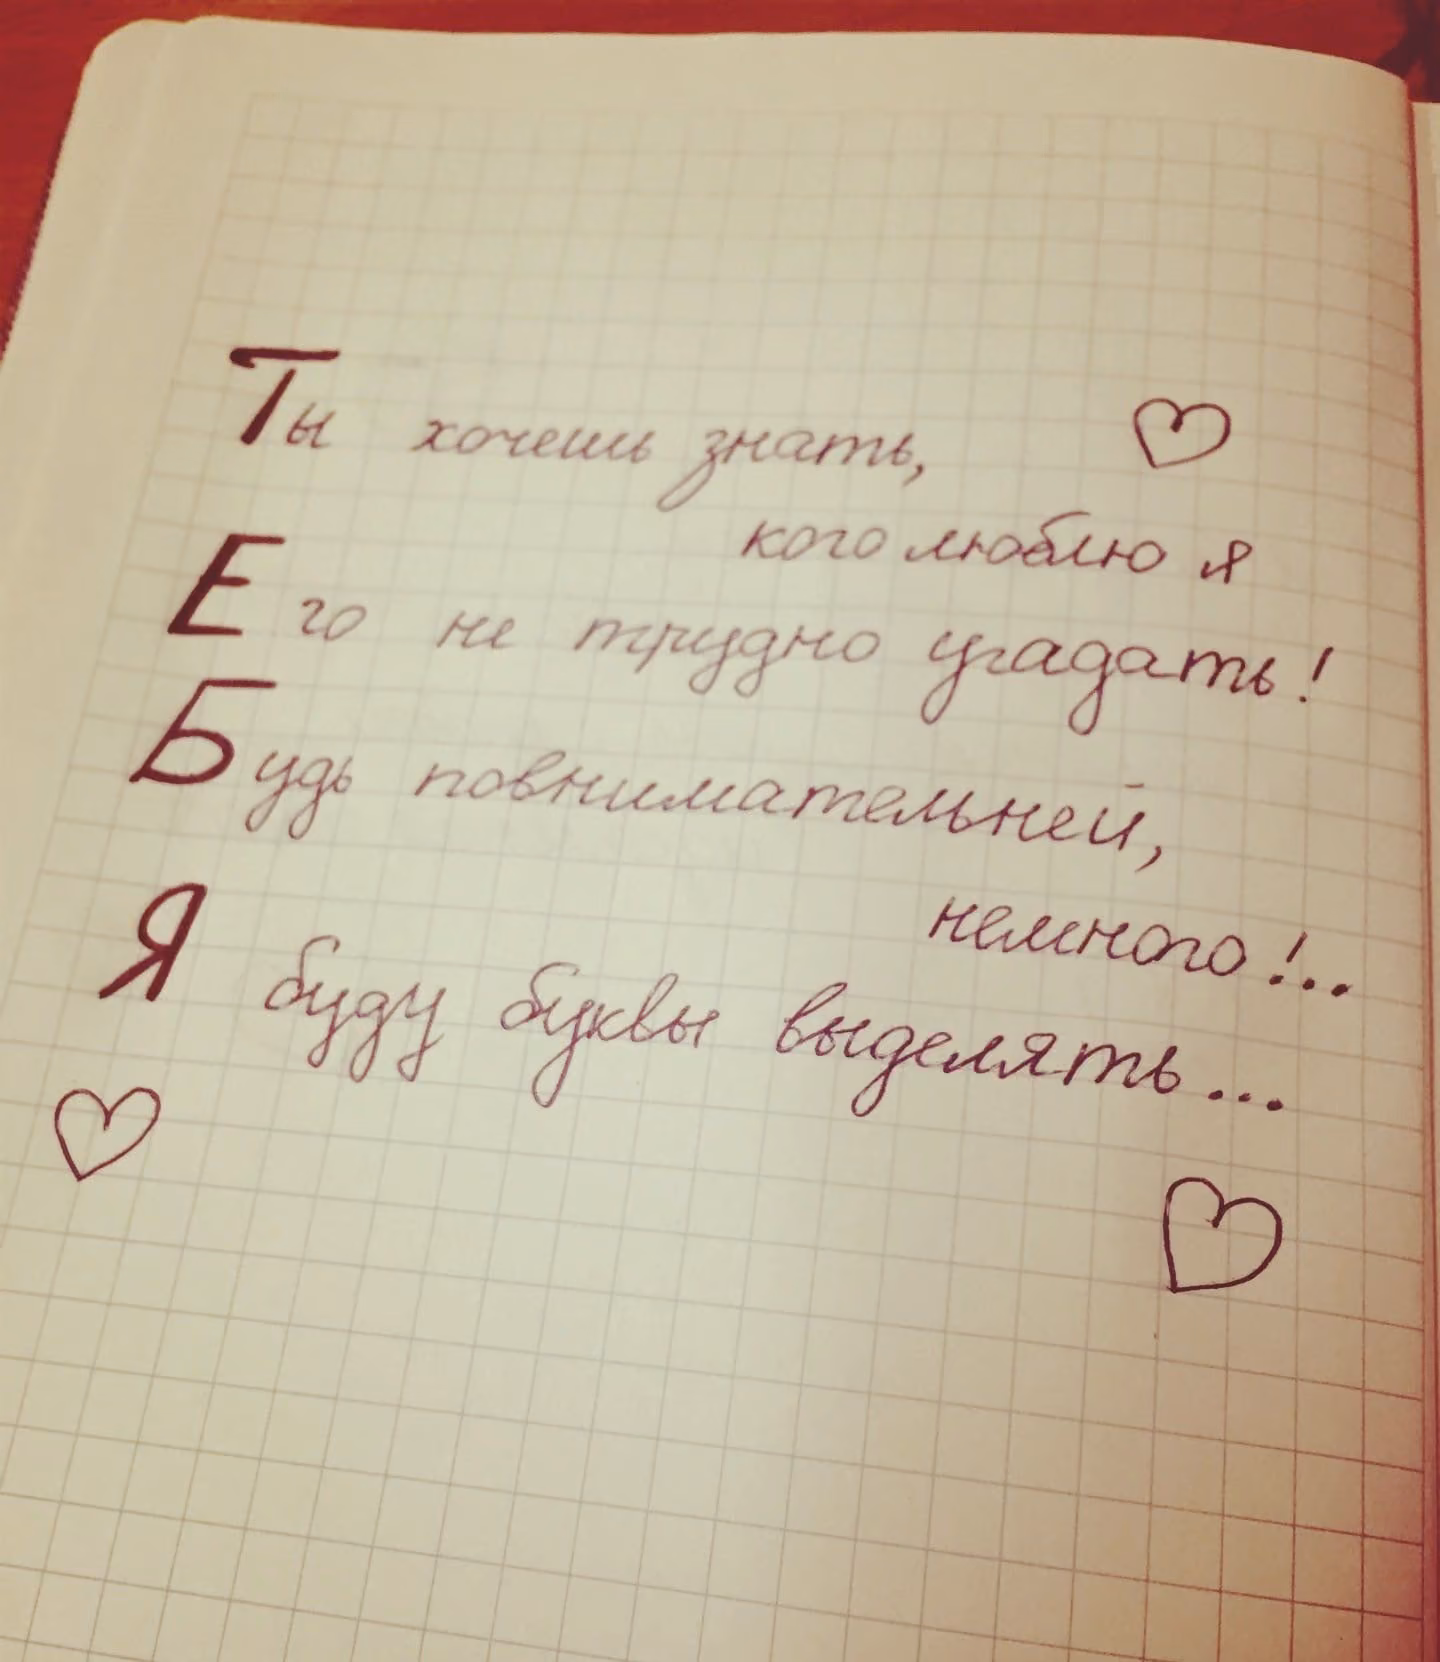 Ты хочешь знать,
кого люблю я
Его не трудно угадать!
Будь повнимательней,
немного!..
Я буду буквы выделять...